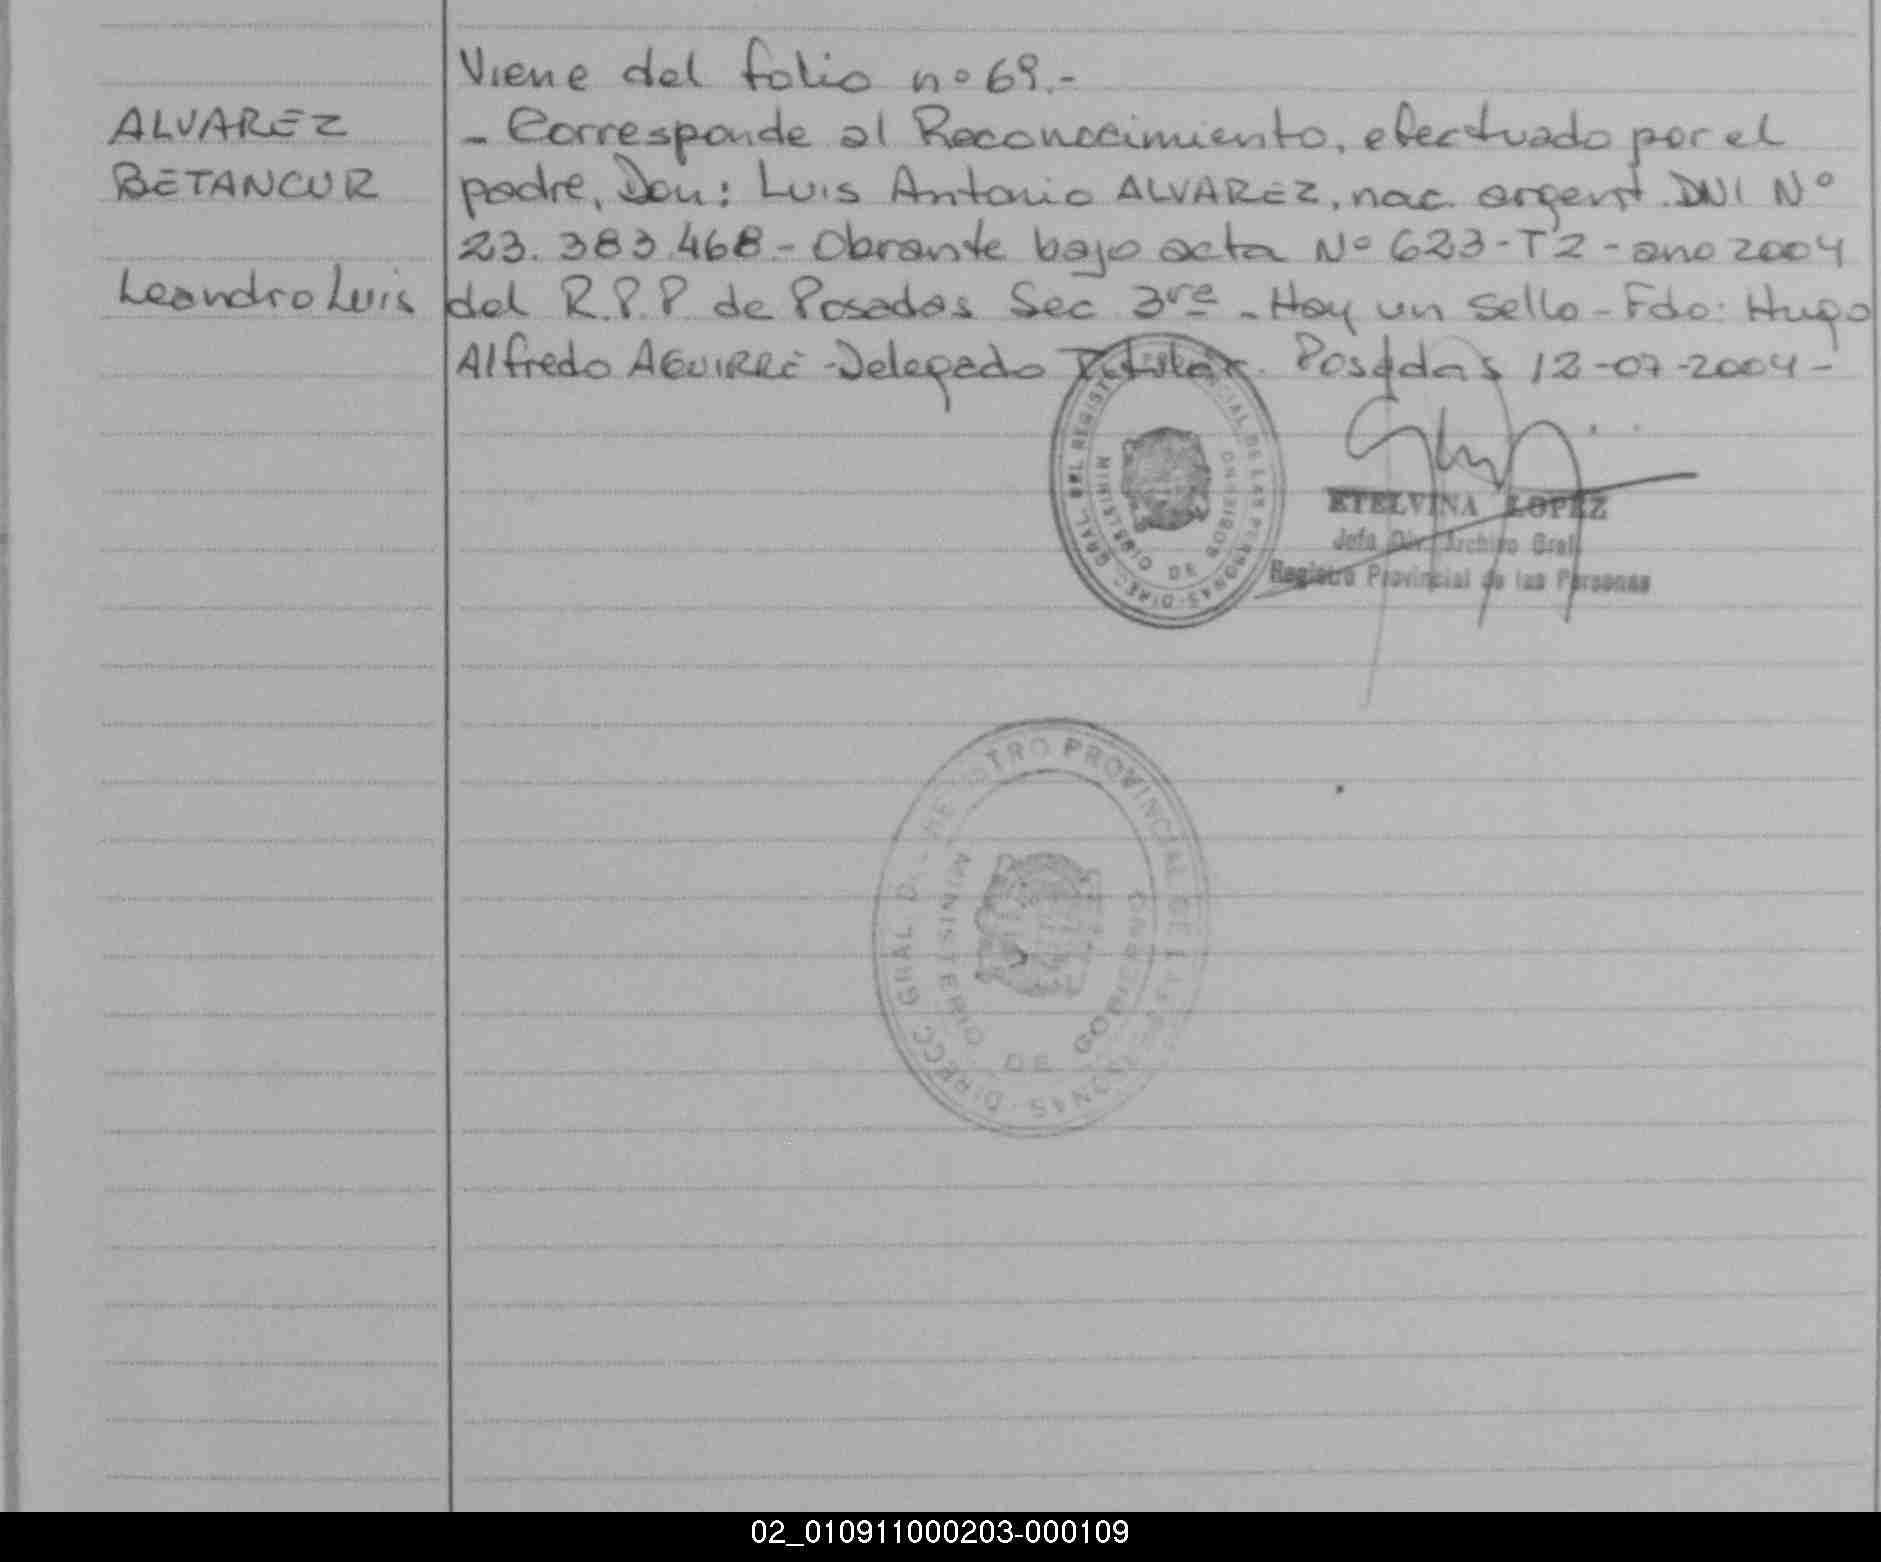 Viene del folio nº 69.-
ALVAREZ
BETANCUR
Leandro Luis
- Corresponde al Reconocimiento, efectuado por el
padre, Don: Luis Antonio ALVAREZ, nac. argent. DNI Nº
23.383.468.- Obrante bajo acta Nº 623-T2-ano 2004
del R.P.P. de Posadas Sec 3ra - Hay un sello - Fdo: Hugo
Alfredo AGUIRRE - Delegado Titular. Posadas 12-07-2004-
ETELVINA LOPEZ
Jefa Div. Archivo Gral.
Registro Provincial de las Personas
DIREC. GRAL. DEL REGISTRO PROVINCIAL DE LAS PERSONAS
MINISTERIO DE GOBIERNO
DIRECC GRAL DEL REGISTRO PROVINCIAL DE LAS PERSONAS
MINISTERIO DE GOBIERNO
02_010911000203-000109